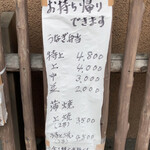 お持ち帰り
できます
うなぎ弁当
特上 4,800
上 4,000
中 3,000
並 2,000
蒲焼
上 焼 3500